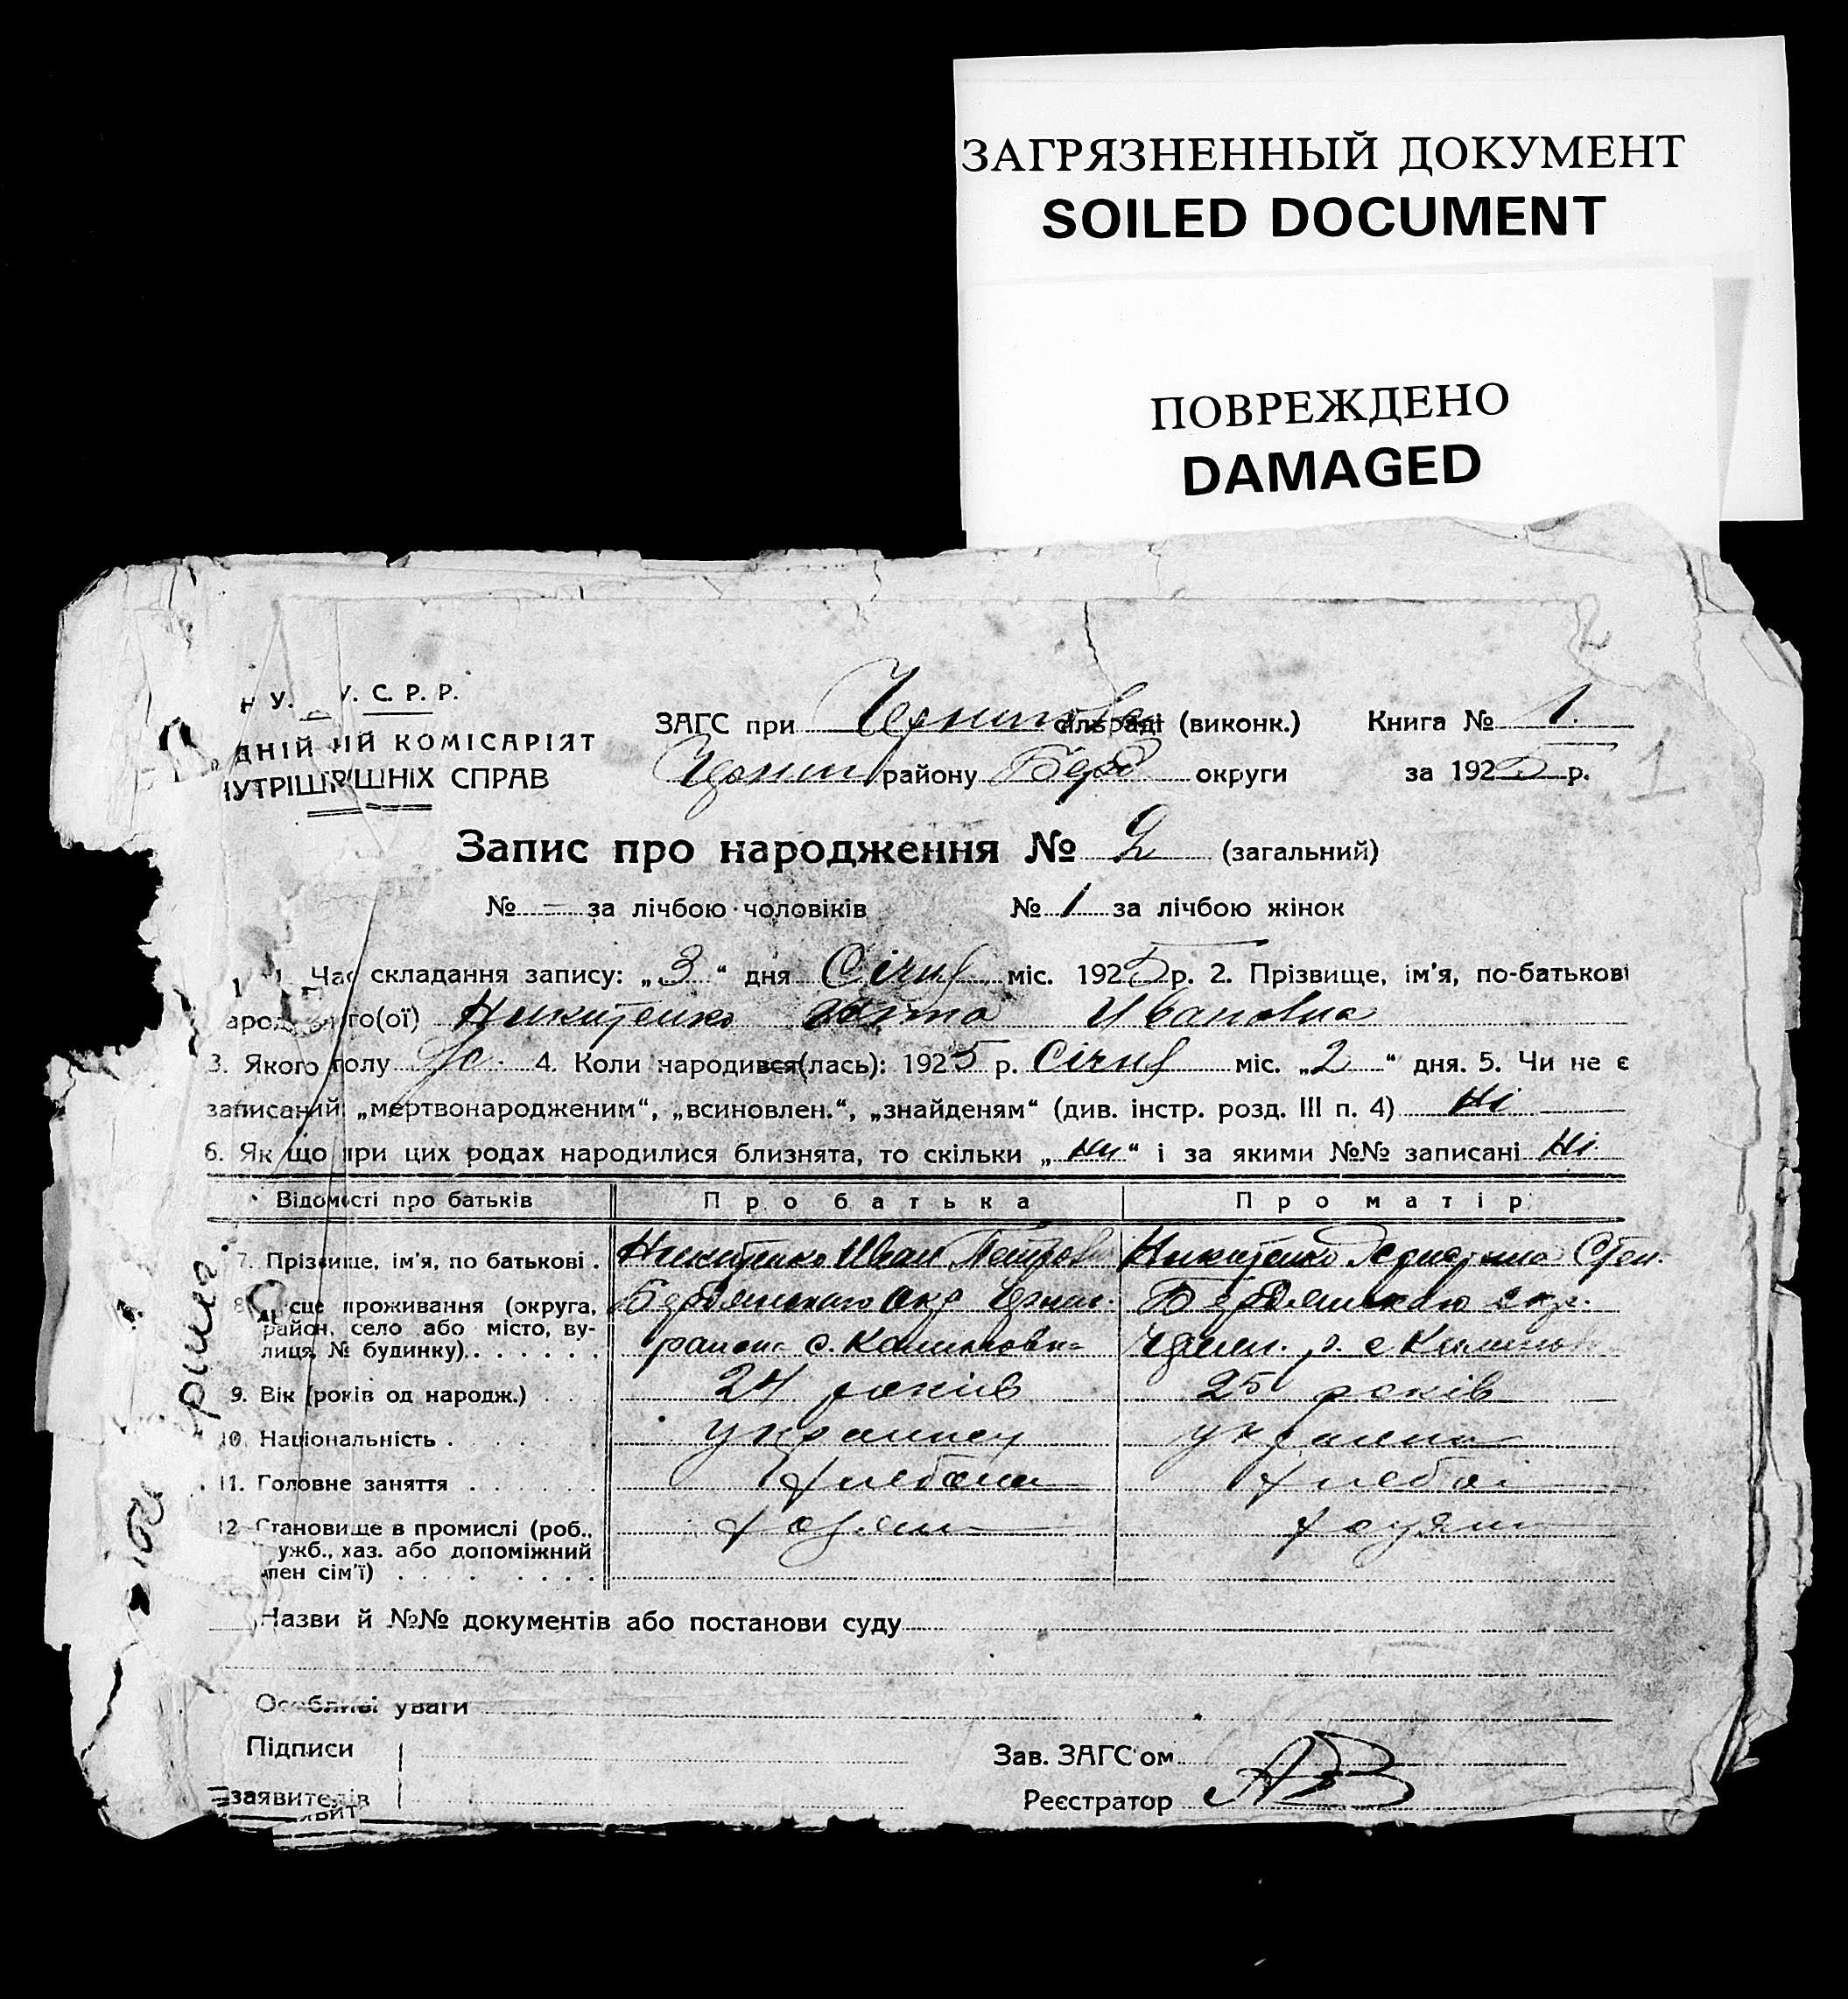 ЗАГРЯЗНЕННЫЙ ДОКУМЕНТ
SOILED DOCUMENT
ПОВРЕЖДЕНО
DAMAGED
У. С. Р. Р.
ДНІЙ КОМІСАРІЯТ
СПРАВ
ЗАГС при сільраді (виконк.) Книга № 1.
району Берд округи за 1925 р.
Запис про народження № 2 (загальний)
№ – за лічбою чоловіків № 1 за лічбою жінок
1. Час складання запису: „3“ дня Січня міс. 1925 р. 2. Прізвище, ім'я, по-батькові
Никитенко Ивановна
3. Якого полу ж. 4. Коли народився(лась): 1925 р. Січня міс. „2“ дня. 5. Чи не є
записаний „мертвонародженим“, „всиновлен.“, „знайденям“ (див. інстр. розд. III п. 4) Ні
6. Якщо при цих родах народилися близнята, то скільки „ни“ і за якими №№ записані Ні
Відомості про батьків Про батька Про матір
7. Прізвище, ім'я, по батькові . Никитенко Иван Петров Никитенко Степ.
8. Місце проживання (округа, район, село або місто, вулиця, № будинку). Бердянскаго Окр Черниг. Бердянскаго окр.
района с. Калиновка Черниг. р. с Калинов
9. Вік (років од народж.) 24 років 25 років
10. Національність . украинец украинка
11. Головне заняття хлебопаш хлебоп
12. Становище в промислі (роб., служб., хаз. або допоміжний член сім'ї) хозяин хозяин
Назви й №№ документів або постанови суду
Особливі уваги
Підписи Зав. ЗАГС'ом
заявителів Реєстратор